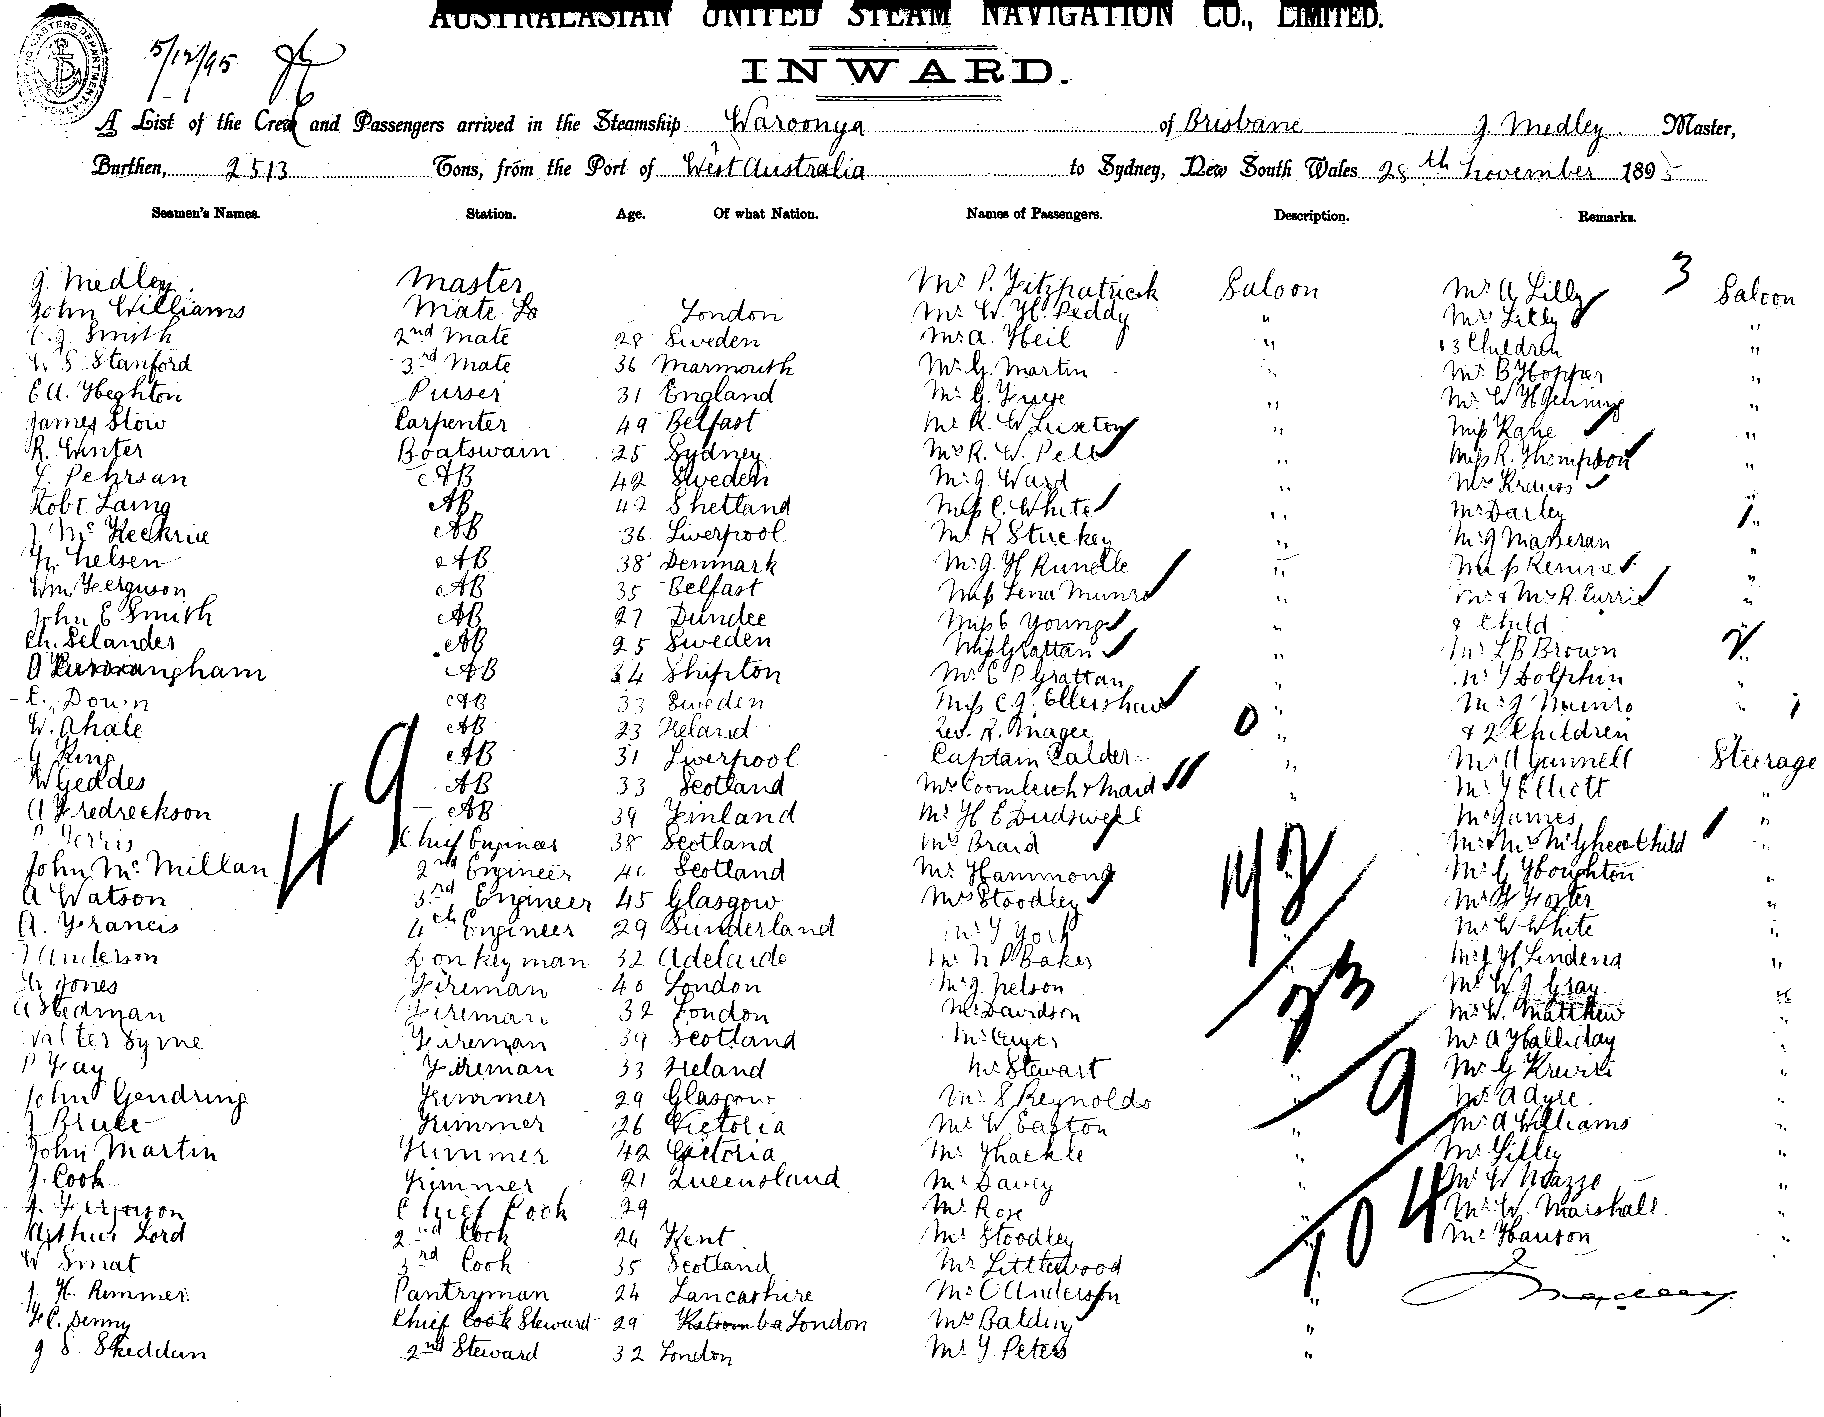 AUSTRALASIAN UNITED STEAM NAVIGATION CO., LIMITED.
5/12/95
INWARD.
A List of the Crew and Passengers arrived in the Steamship Waroonga of Brisbane J. Medley Master,
Burthen, 2513 Tons, from the Port of West Australia to Sydney, New South Wales 28th November 1895
Seamen's Names. Station. Age. Of what Nation. Names of Passengers. Description. Remarks.
J. Medley. Master Mr P. Fitzpatrick Saloon Mr A Lilly 3 Saloon
John Williams Mate London Mr W. H. Peddy " Mrs Lilly "
C. J. Smith 2nd Mate 28 Sweden Mr A. Heil " 3 Children "
W S Stanford 3rd Mate 36 Marmouth Mr G. Martin " Mr B Hopper "
E A. Heghton Purser 31 England Mr G. " Mr W H "
James Stow Carpenter 49 Belfast Mr R. W Luxton " Miss Kane "
R. Winter Boatswain 25 Sydney Mr R. W. Pell " Miss R. Thompson "
L. Pehrsan AB 42 Sweden Mr J. Ward " Mrs Krauss "
Robt Laing AB 42 Shetland Miss C. White " Mr Darley "
J Mc Keckrie AB 36 Liverpool Mr R Stuckey " Mr J Masseran "
N. Nelsen AB 38 Denmark Mr J H Rundle " Miss "
Wm Ferguson AB 35 Belfast Miss Lena Munro " Mr & Mrs R. Currie "
John E Smith AB 27 Dundee Miss C Young " & Child "
Ch. Selander AB 25 Sweden Miss Grattan " Mr L B Brown 2 "
AB 34 Shipton Mr C P Grattan " Mr T Dolphin "
E. Down AB 33 Sweden Miss C. J. Ellershaw " Mr J Munro " 1
W. Whale AB 23 Ireland Rev. R. Magee 0 " & 2 Children
G King AB 31 Liverpool Captain Calder " Mr A Gunnell Steerage
W Geddes AB 33 Scotland & Maid " Mr T Elliott "
A Fredreckson AB 39 Finland Mr H E Dudswell Mr James "
P Ferris Chief Engineer 38 Scotland Mrs Braid Mr & Mrs McGhee & Child "
John Mc Millan 49 2nd Engineer 40 Scotland Mr Hammond 42 Mr G Houghton "
A Watson 3rd Engineer 45 Glasgow Mrs Stoodley Mr H Foster "
A. Francis 4th Engineer 29 Sunderland Mr T York " Mr W White "
J Anderson Donkeyman 32 Adelaide Mr N P Baker " Mr J H Lindena "
G Jones Fireman 40 London Mr J. Nelson 53 Mr W J Gray "
A Stedman Fireman 32 London Mr Davidson Mr W. Matthew "
Walter Syme Fireman 39 Scotland Mr Ayer " Mr A Halliday "
P Fay Fireman 33 Ireland Mr Stewart " Mr G "
John Gendring Trimmer 29 Glasgow Mr S Reynolds " 9 Mr A Ayre. "
J Bruce Trimmer 26 Victoria Mr W Easton " Mr A Williams "
John Martin Trimmer 42 Victoria Mr Thackle " Mr Lilley "
J. Cook Trimmer 21 Queensland Mr Davey " Mr W "
J. Ferguson Chief Cook 29 Mr Rose " 104 Mr W. Marshall. "
Arthur Lord 2nd Cook 26 Kent Mr Stoodley Mr Hanson "
W Smat 3rd Cook 35 Scotland Mr Littlewood
J. H. Rimmer Pantryman 24 Lancashire Mr C Anderson " J Medley
H C. Denny Chief Cook Steward 29 Katoomba London Mrs Balding "
J S. Skeddan 2nd Steward 32 London Mr T. Peters "